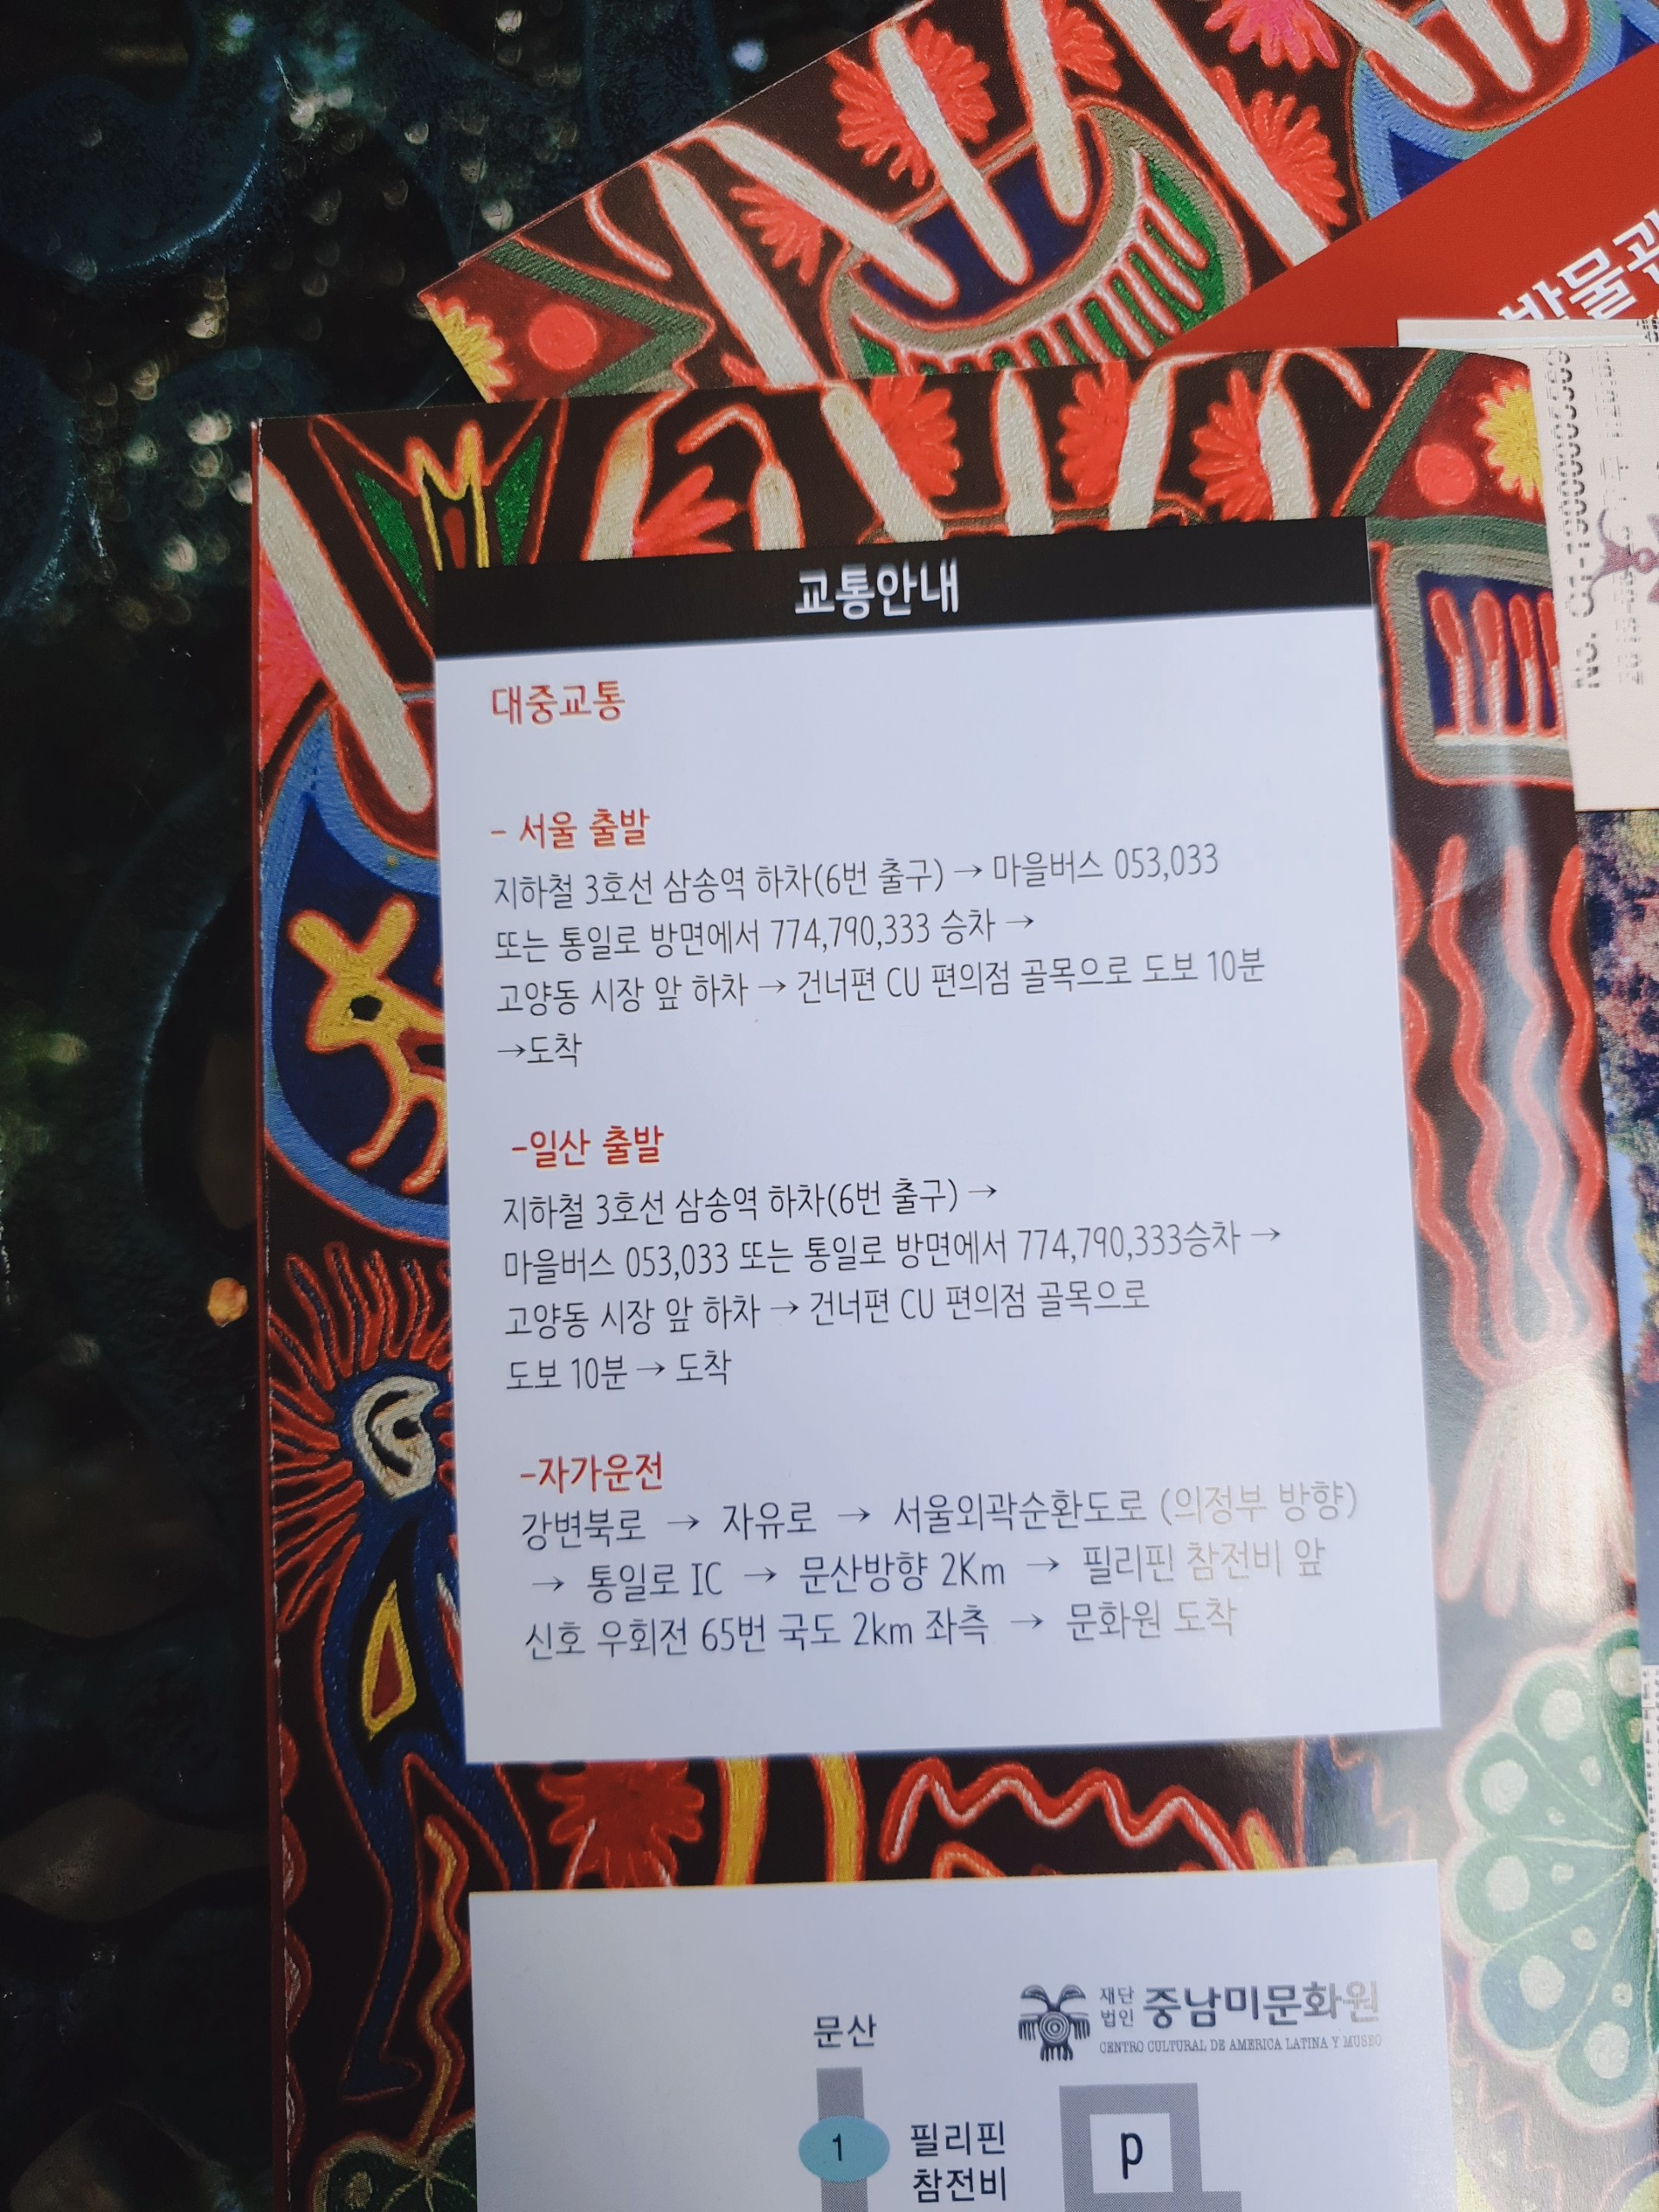 교통안내
대중교통
- 서울 출발
지하철 3호선 삼송역 하차(6번 출구) → 마을버스 053,033
또는 통일로 방면에서 774,790,333 승차 →
고양동 시장 앞 하차 → 건너편 CU 편의점 골목으로 도보 10분
→도착
-일산 출발
지하철 3호선 삼송역 하차(6번 출구) →
마을버스 053,033 또는 통일로 방면에서 774,790,333승차 →
고양동 시장 앞 하차 → 건너편 CU 편의점 골목으로
도보 10분 → 도착
-자가운전
강변북로 → 자유로 → 서울외곽순환도로 (의정부 방향)
→ 통일로 IC → 문산방향 2Km → 필리핀 참전비 앞
신호 우회전 65번 국도 2km 좌측 → 문화원 도착
재단
법인 중남미문화원
CENTRO CULTURAL DE AMERICA LATINA Y MUSEO
문산
1
필리핀
참전비
P